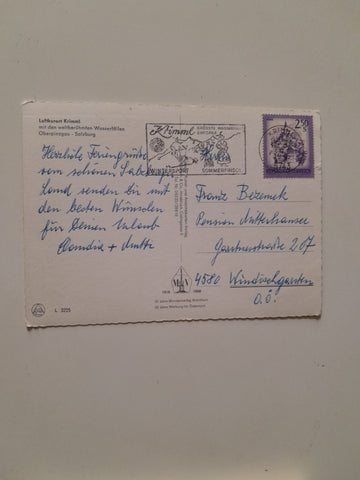 Luftkurort Krimml
mit den weltberühmten Wasserfällen
Oberpinzgau - Salzburg
Krimml
GRÖSSTE WASSERFÄLLE
EUROPAS
WINTERSPORT
SOMMERFRISCHE
2.50
Herzliche Feriengrüße
vom schönen Salzburger
Land senden dir mit
den besten Wünschen
für Deinen Urlaub
Claudia + Mutti
Franz Bezemek
Pension Mitterhauser
Gaertnerstraße 207
4580 Windischgarsten
O.Ö.
L 3225